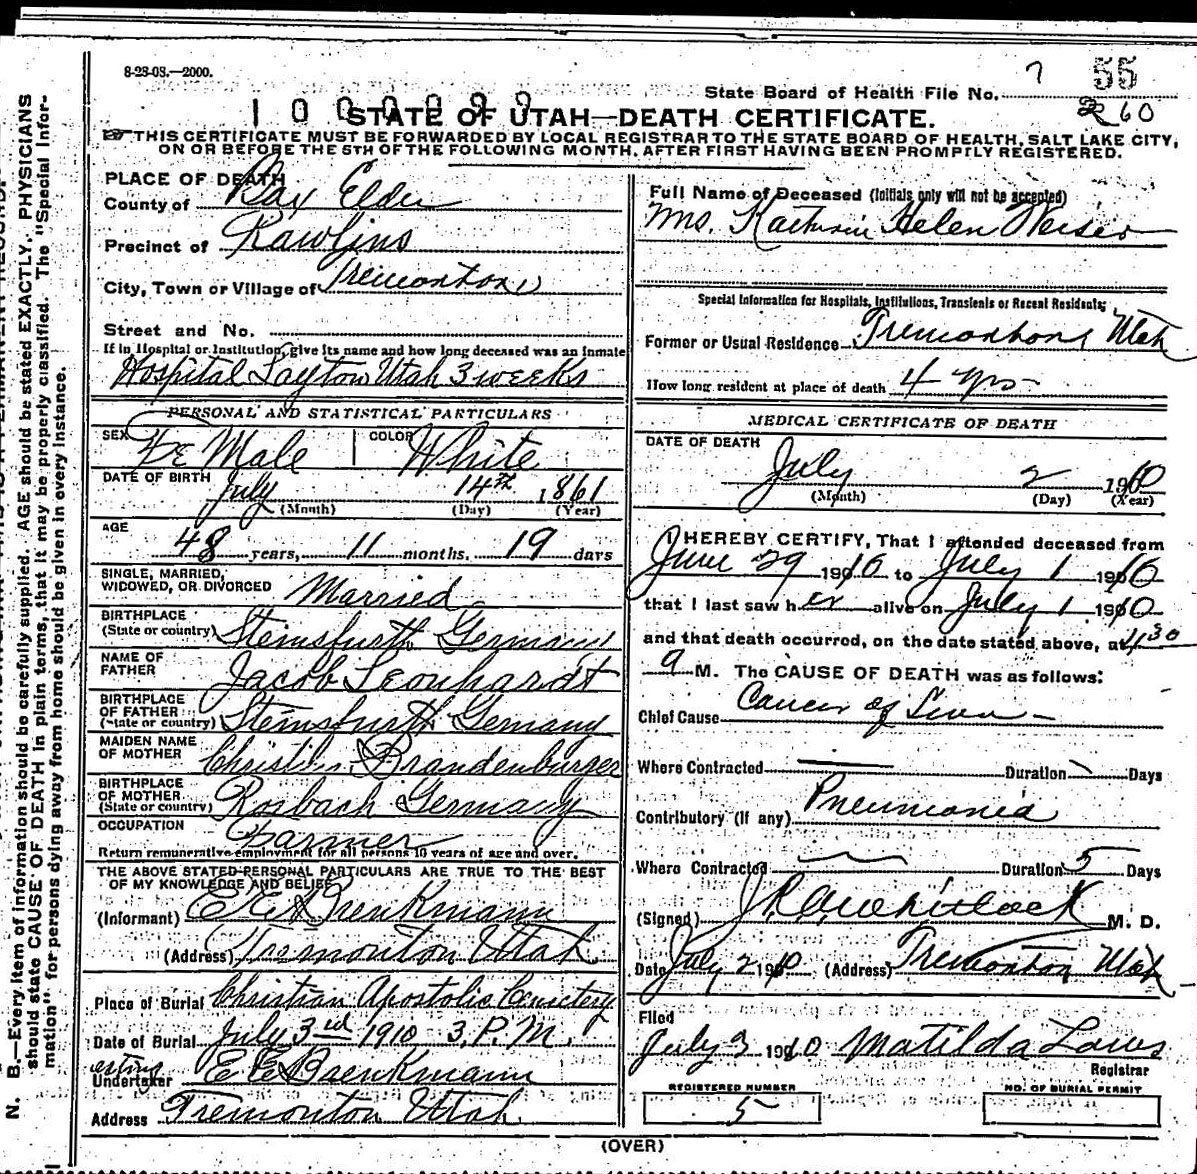 8-28-08.—2000.
7 55
State Board of Health File No.
2260
STATE OF UTAH—DEATH CERTIFICATE.
THIS CERTIFICATE MUST BE FORWARDED BY LOCAL REGISTRAR TO THE STATE BOARD OF HEALTH, SALT LAKE CITY,
ON OR BEFORE THE 5TH OF THE FOLLOWING MONTH, AFTER FIRST HAVING BEEN PROMPTLY REGISTERED.
PLACE OF DEATH
County of Box Elder
Precinct of Rawlins
City, Town or Village of Tremonton
Street and No.
If in Hospital or Institution, give its name and how long deceased was an inmate
Hospital Layton Utah 3 weeks
PERSONAL AND STATISTICAL PARTICULARS
SEX Fe Male COLOR White
DATE OF BIRTH July 14th 1861
(Month) (Day) (Year)
AGE 48 years, 11 months, 19 days
SINGLE, MARRIED,
WIDOWED, OR DIVORCED Married
BIRTHPLACE
(State or country) Steinsfurth Germany
NAME OF
FATHER Jacob Leonhardt
BIRTHPLACE
OF FATHER
(State or country) Steinsfurth Gemany
MAIDEN NAME
OF MOTHER Brandenburger
BIRTHPLACE
OF MOTHER
(State or country) Rosbach Germany
OCCUPATION Farmer
Return remunerative employment for all persons 10 years of age and over.
THE ABOVE STATED PERSONAL PARTICULARS ARE TRUE TO THE BEST
OF MY KNOWLEDGE AND BELIEF
(Informant) E E Brenkmann
(Address) Tremonton Utah
Place of Burial Christian Apostolic Cemetery
Date of Burial July 3rd 1910 3 P.M.
Undertaker E E Brenkmann
Address Tremonton Utah
Full Name of Deceased (Initials only will not be accepted)
Mrs. Kathrin Helen Weiser
Special Information for Hospitals, Institutions, Transients or Recent Residents;
Former or Usual Residence Tremonton Utah
How long resident at place of death 4 yrs
MEDICAL CERTIFICATE OF DEATH
DATE OF DEATH
July 2 1910
(Month) (Day) (Year)
I HEREBY CERTIFY, That I attended deceased from
June 29 1910 to July 1 1910
that I last saw her alive on July 1 1910
and that death occurred, on the date stated above, at 4:30
a M. The CAUSE OF DEATH was as follows:
Chief Cause Cancer of Liver
Where Contracted Duration Days
Contributory (If any) Pneumonia
Where Contracted Duration 5 Days
(Signed) M. D.
Date July 2 1910 (Address) Tremonton Utah
Filed
July 3 1910 Matilda Laws
Registrar
REGISTERED NUMBER
5
NO. OF BURIAL PERMIT
(OVER)
N. B.—Every item of information should be carefully supplied. AGE should be stated EXACTLY. PHYSICIANS
should state CAUSE OF DEATH in plain terms, that it may be properly classified. The "Special Infor-
mation" for persons dying away from home should be given in every instance.